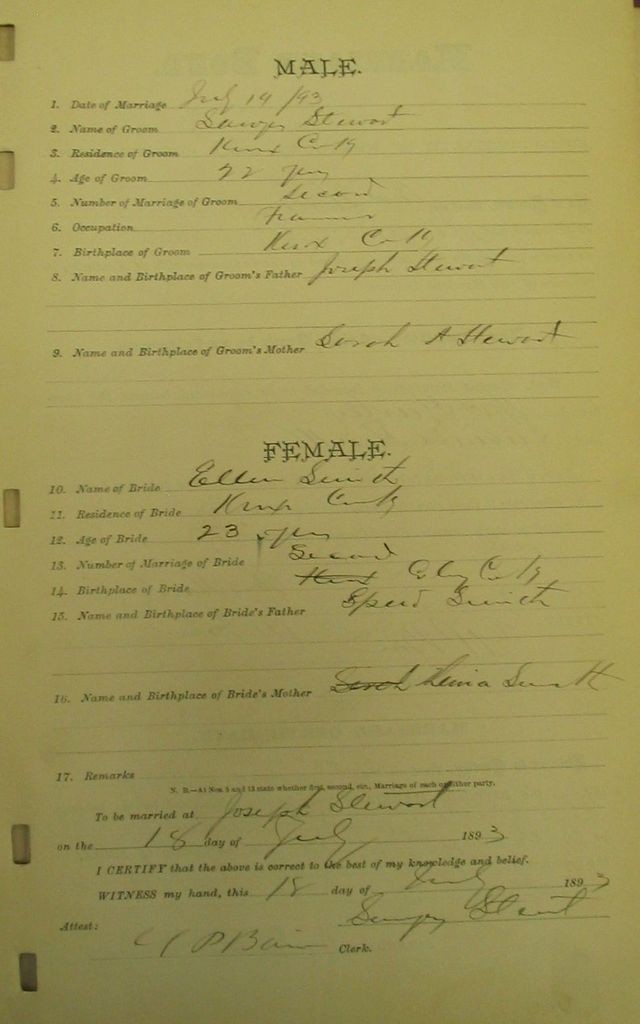 MALE.
1. Date of Marriage July 19 /93
2. Name of Groom Stewart
3. Residence of Groom Knox Co Ky
4. Age of Groom 22 yrs
5. Number of Marriage of Groom Second
6. Occupation Farmer
7. Birthplace of Groom Knox Co Ky
8. Name and Birthplace of Groom's Father Joseph Stewart
9. Name and Birthplace of Groom's Mother Sarah A Stewart
FEMALE.
10. Name of Bride Ellen Smith
11. Residence of Bride Knox Co Ky
12. Age of Bride 23 yrs
13. Number of Marriage of Bride Second
14. Birthplace of Bride Knox Clay Co Ky
15. Name and Birthplace of Bride's Father Speed Smith
16. Name and Birthplace of Bride's Mother Sarah Smith
17. Remarks
N. B.—At Nos 5 and 13 state whether first, second, etc., Marriage of each or either party.
To be married at Joseph Stewart
on the 18 day of July 1893
I CERTIFY that the above is correct to the best of my knowledge and belief.
WITNESS my hand, this 18 day of July 1893
Attest:
Clerk.